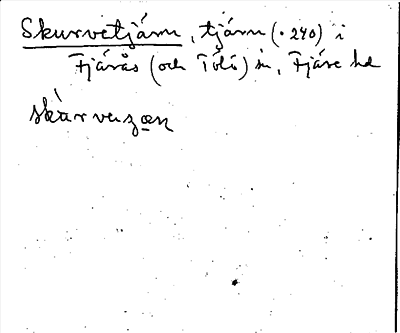 Skurvetjärn, tjärn (·240) i
Fjärås (och Tölö) sn, Fjäre hd